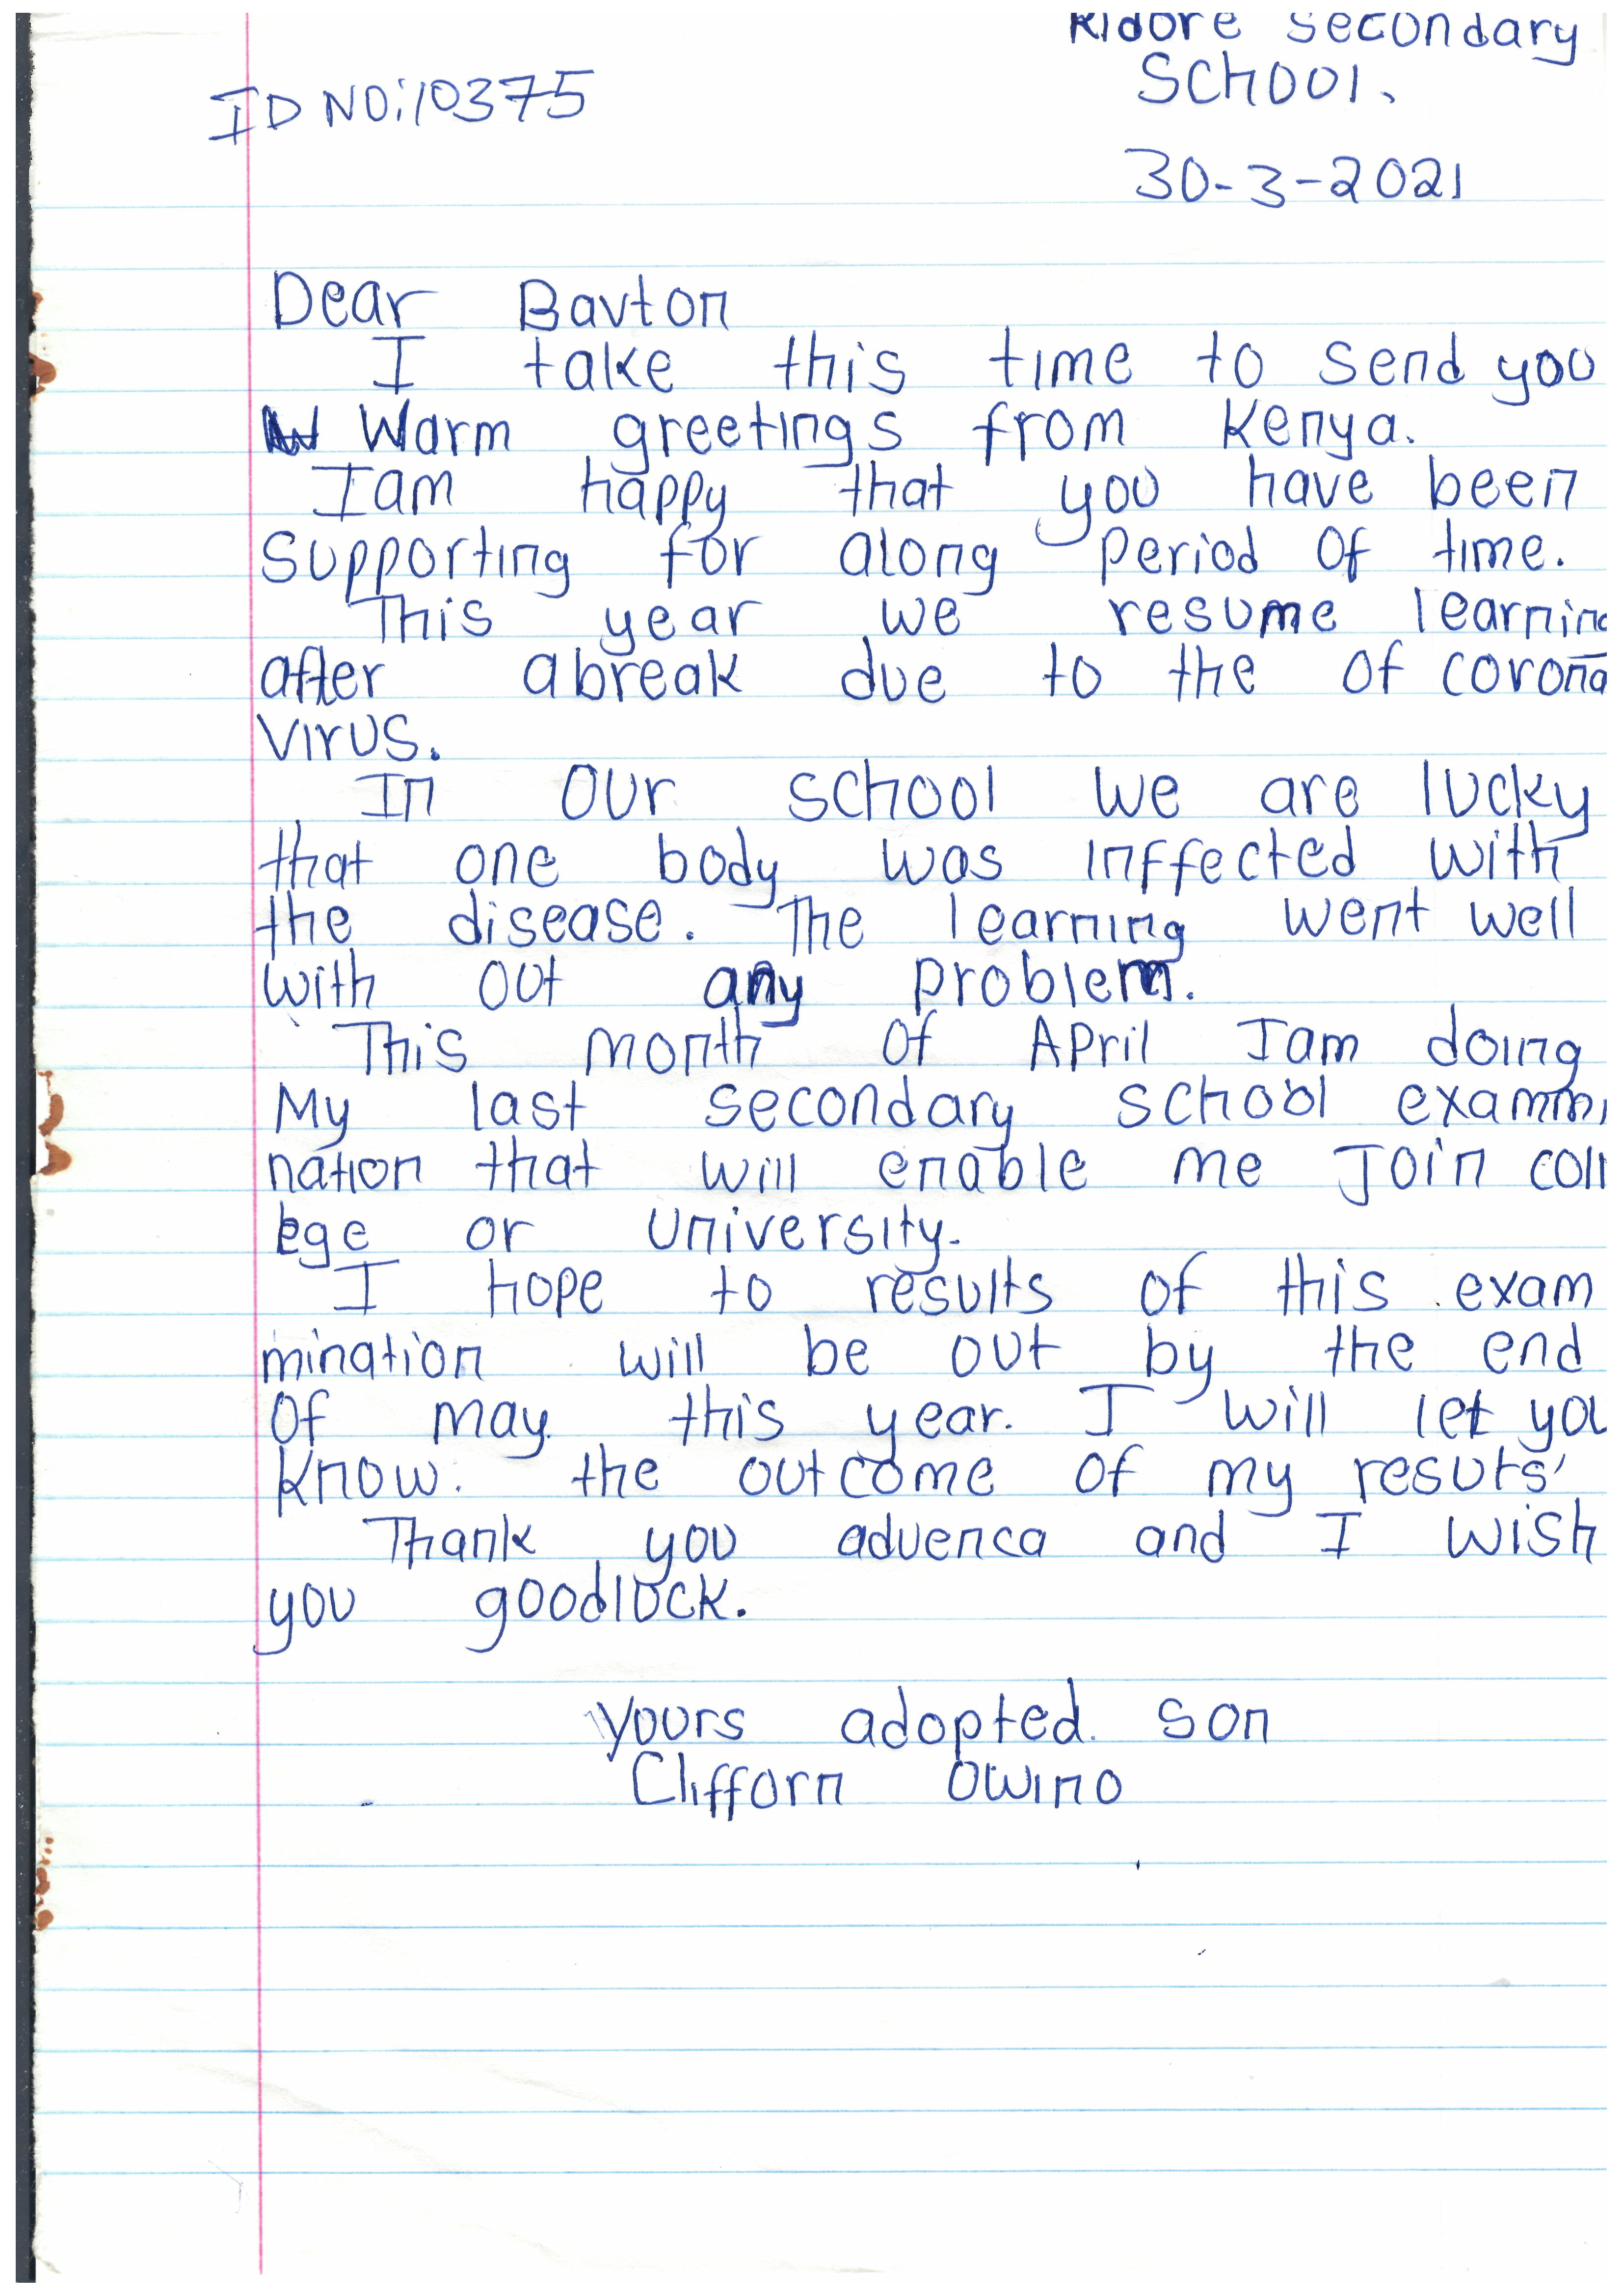 Kidore Secondary
School.
ID NO: 10375
30-3-2021
Dear Bavton
I take this time to send you
Warm greetings from Kenya.
Iam happy that you have been
Supporting for along period of time.
This year we resume learning
after abreak due to the of corona
virus.
In our school we are lucky
that one body was inffected with
the disease. The learning went well
with out any problem.
This month of April Iam doing
My last secondary school exammi
nation that will enable me Join coll
ege or university.
I hope to results of this exam
mination will be out by the end
of may this year. I will let you
know. the outcome of my resuts'
Thank you advenca and I wish
you goodluck.
yours adopted. son
Clifforn Owino